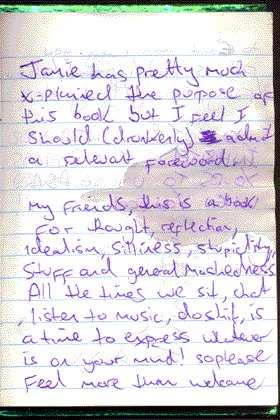 Jamie has pretty much
x-plained the purpose of
this book but I feel I
should (drunkenly) admit
a relevant foreword.
My friends, this is a book
for thought, reflection,
idealism, silliness, stupidity,
stuff and general mashedness
All the times we sit, chat
, listen to music, do shit, is
a time to express whatever
is on your mind! so please
feel more than welcome